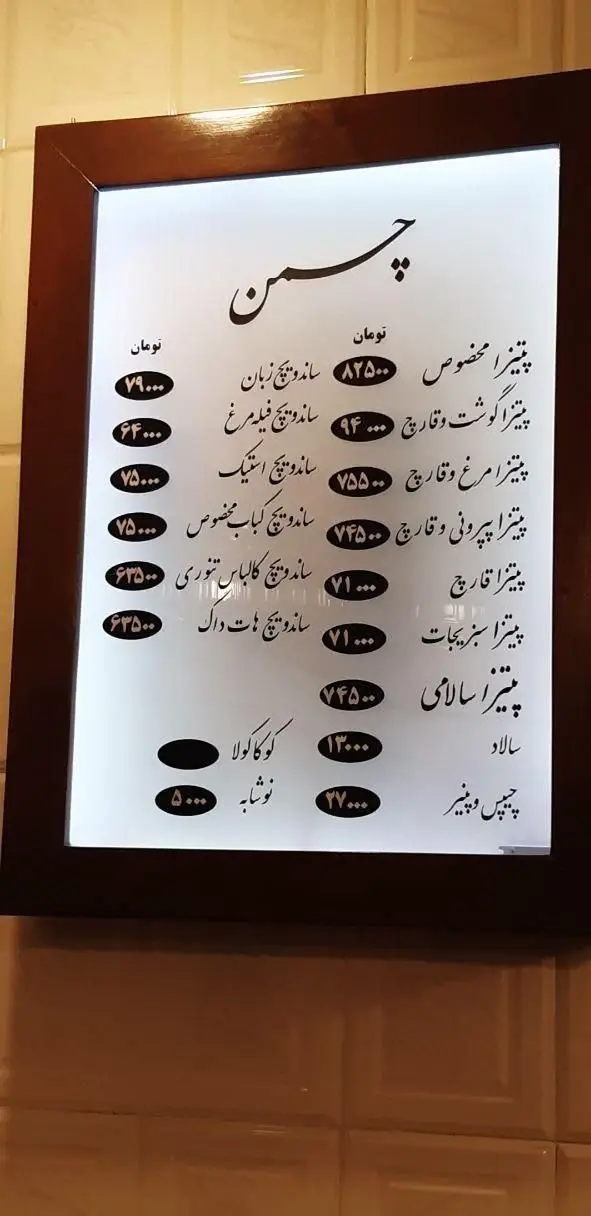 چمن
تومان
پیتزا مخصوص ۸۲۵۰۰
پیتزا گوشت و قارچ ۹۴۰۰۰
پیتزا مرغ و قارچ ۷۵۵۰۰
پیتزا پپرونی و قارچ ۷۴۵۰۰
پیتزا قارچ ۷۱۰۰۰
پیتزا سبزیجات ۷۱۰۰۰
پیتزا سالامی ۷۴۵۰۰
سالاد ۱۳۰۰۰
چیپس و پنیر ۲۷۰۰۰
تومان
ساندویچ زبان ۷۹۰۰۰
ساندویچ فیله مرغ ۶۴۰۰۰
ساندویچ استیک ۷۵۰۰۰
ساندویچ کباب مخصوص ۷۵۰۰۰
ساندویچ کالباس تنوری ۶۳۵۰۰
ساندویچ هات داگ ۶۳۵۰۰
کوکاکولا
نوشابه ۵۰۰۰